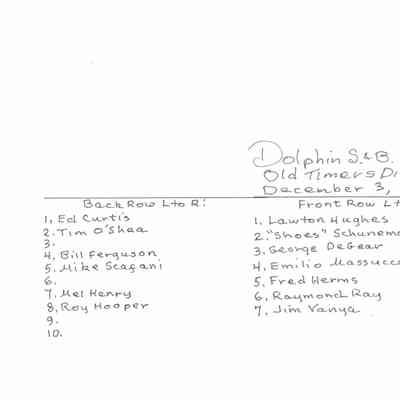 Dolphin S.&B.
Old Timers Di
December 3,
Back Row L to R:
1. Ed Curtis
2. Tim O'Shea
3.
4. Bill Ferguson
5. Mike Scagani
6.
7. Mel Henry
8. Roy Hooper
9.
10.
Front Row L t
1. Lawton Hughes
2. "Shoes" Schunem
3. George DeGear
4. Emilio Massucc
5. Fred Herms
6. Raymond Ray
7. Jim Vanya